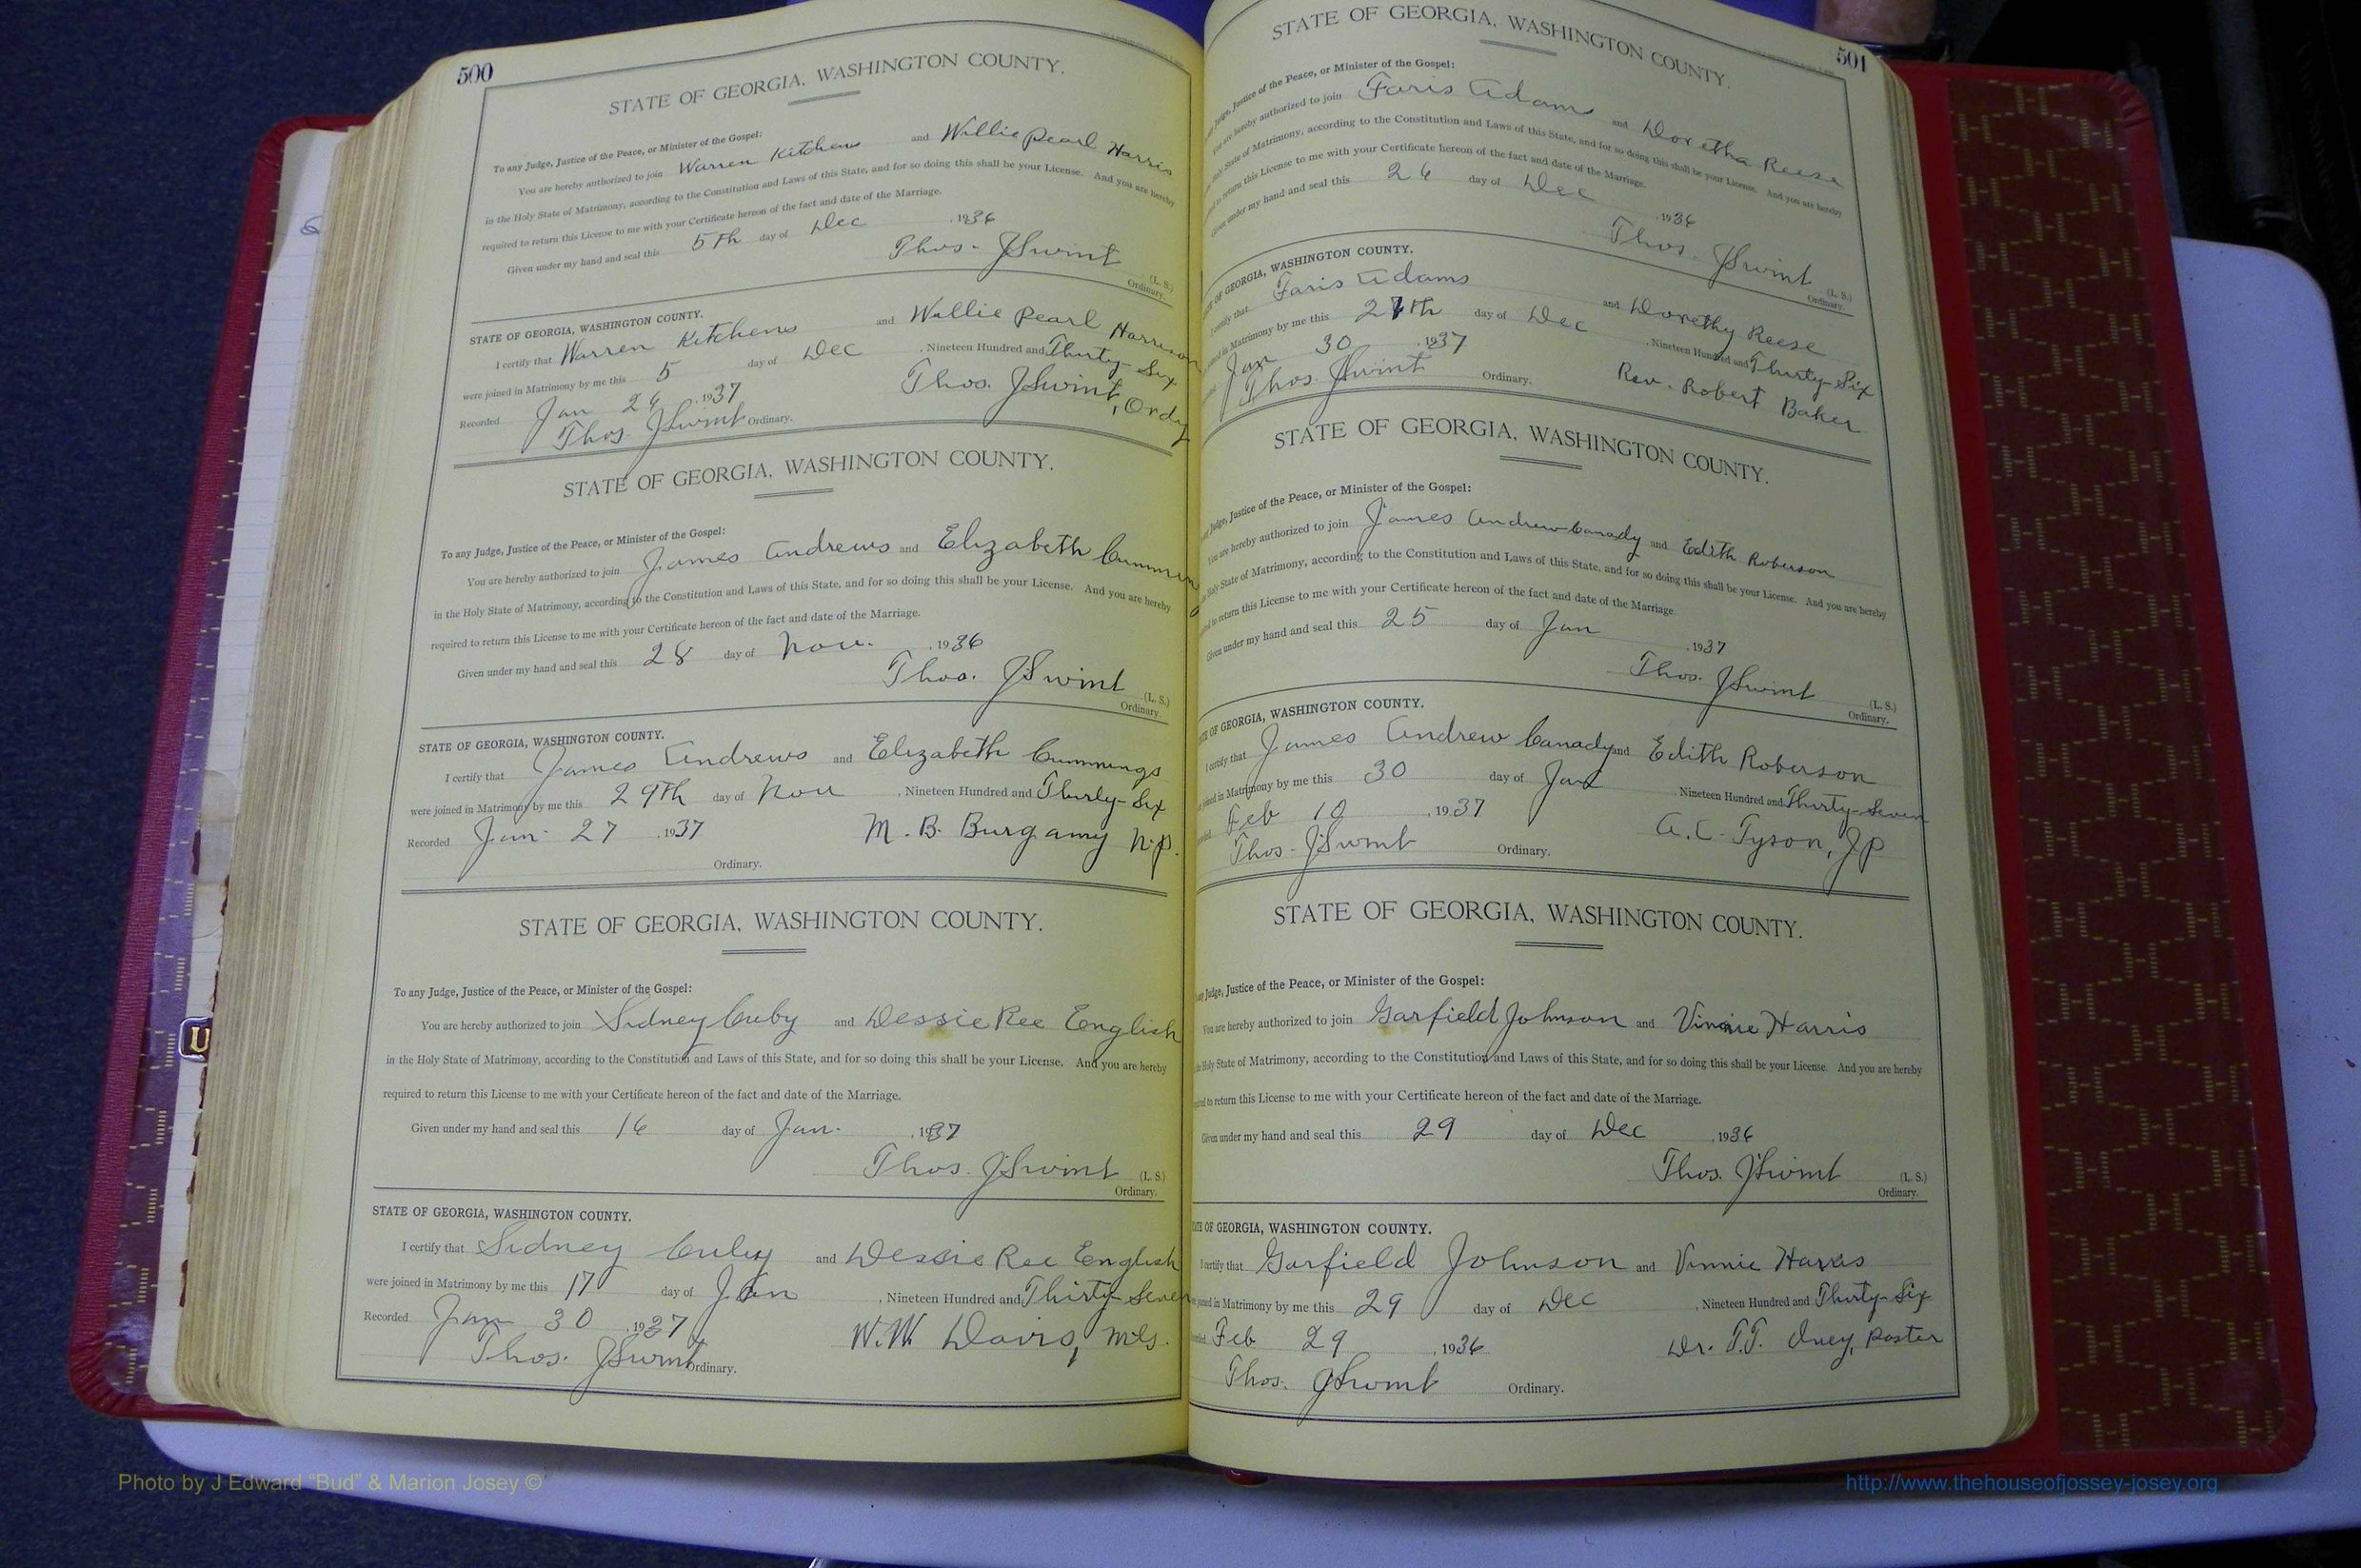 500
STATE OF GEORGIA, WASHINGTON COUNTY.
To any Judge, Justice of the Peace, or Minister of the Gospel:
You are hereby authorized to join Warren Kitchens and Willie Pearl Harris
in the Holy State of Matrimony, according to the Constitution and Laws of this State, and for so doing this shall be your License. And you are hereby
required to return this License to me with your Certificate hereon of the fact and date of the Marriage.
Given under my hand and seal this 5th day of Dec , 1936
Thos. J Swint (L. S.)
Ordinary.
STATE OF GEORGIA, WASHINGTON COUNTY.
I certify that Warren Kitchens and Willie Pearl Harrison
were joined in Matrimony by me this 5 day of Dec , Nineteen Hundred and Thirty-Six
Recorded Jan 26 , 1937 Thos. J Swint, Ordy
Thos. J Swint Ordinary.
STATE OF GEORGIA, WASHINGTON COUNTY.
To any Judge, Justice of the Peace, or Minister of the Gospel:
You are hereby authorized to join James Andrews and Elizabeth Cumming
in the Holy State of Matrimony, according to the Constitution and Laws of this State, and for so doing this shall be your License. And you are hereby
required to return this License to me with your Certificate hereon of the fact and date of the Marriage.
Given under my hand and seal this 28 day of Nov. , 1936
Thos. J Swint (L. S.)
Ordinary.
STATE OF GEORGIA, WASHINGTON COUNTY.
I certify that James Andrews and Elizabeth Cummings
were joined in Matrimony by me this 29th day of Nov , Nineteen Hundred and Thirty-Six
Recorded Jan. 27 , 1937 M. B. Burgamy N.P.
Ordinary.
STATE OF GEORGIA, WASHINGTON COUNTY.
To any Judge, Justice of the Peace, or Minister of the Gospel:
You are hereby authorized to join Sidney Cuby and Dessie Ree English
in the Holy State of Matrimony, according to the Constitution and Laws of this State, and for so doing this shall be your License. And you are hereby
required to return this License to me with your Certificate hereon of the fact and date of the Marriage.
Given under my hand and seal this 16 day of Jan. , 1937
Thos. J Swint (L. S.)
Ordinary.
STATE OF GEORGIA, WASHINGTON COUNTY.
I certify that Sidney Cuby and Dessie Ree English
were joined in Matrimony by me this 17 day of Jan , Nineteen Hundred and Thirty-Seven
Recorded Jan 30 , 1937 W. W. Davis, M.G.
Thos. J Swint Ordinary.
501
STATE OF GEORGIA, WASHINGTON COUNTY.
Judge, Justice of the Peace, or Minister of the Gospel:
You are hereby authorized to join Faris Adams and Doretha Reese
Holy State of Matrimony, according to the Constitution and Laws of this State, and for so doing this shall be your License. And you are hereby
to return this License to me with your Certificate hereon of the fact and date of the Marriage.
Given under my hand and seal this 26 day of Dec , 1936
Thos. J Swint (L. S.)
Ordinary.
OF GEORGIA, WASHINGTON COUNTY.
I certify that Faris Adams and Dorethy Reese
joined in Matrimony by me this 27th day of Dec , Nineteen Hundred and Thirty-Six
Jan 30 , 1937 Rev. Robert Baker
Thos. J Swint Ordinary.
STATE OF GEORGIA, WASHINGTON COUNTY.
Judge, Justice of the Peace, or Minister of the Gospel:
You are hereby authorized to join James Andrew Canady and Edith Roberson
Holy State of Matrimony, according to the Constitution and Laws of this State, and for so doing this shall be your License. And you are hereby
to return this License to me with your Certificate hereon of the fact and date of the Marriage.
Given under my hand and seal this 25 day of Jan , 1937
Thos. J Swint (L. S.)
Ordinary.
OF GEORGIA, WASHINGTON COUNTY.
I certify that James Andrew Canady and Edith Roberson
joined in Matrimony by me this 30 day of Jan , Nineteen Hundred and Thirty-Seven
Feb 10 , 1937 A. C. Tyson, JP
Thos. J Swint Ordinary.
STATE OF GEORGIA, WASHINGTON COUNTY.
Judge, Justice of the Peace, or Minister of the Gospel:
You are hereby authorized to join Garfield Johnson and Vinnie Harris
Holy State of Matrimony, according to the Constitution and Laws of this State, and for so doing this shall be your License. And you are hereby
to return this License to me with your Certificate hereon of the fact and date of the Marriage.
Given under my hand and seal this 29 day of Dec , 1936
Thos. J Swint (L. S.)
Ordinary.
OF GEORGIA, WASHINGTON COUNTY.
I certify that Garfield Johnson and Vinnie Harris
joined in Matrimony by me this 29 day of Dec , Nineteen Hundred and Thirty-Six
Feb 29 , 1936 Dr. T. T. Ivey, Pastor
Thos. J Swint Ordinary.
Photo by J Edward "Bud" & Marion Josey ©
http://www.thehouseofjossey-josey.org